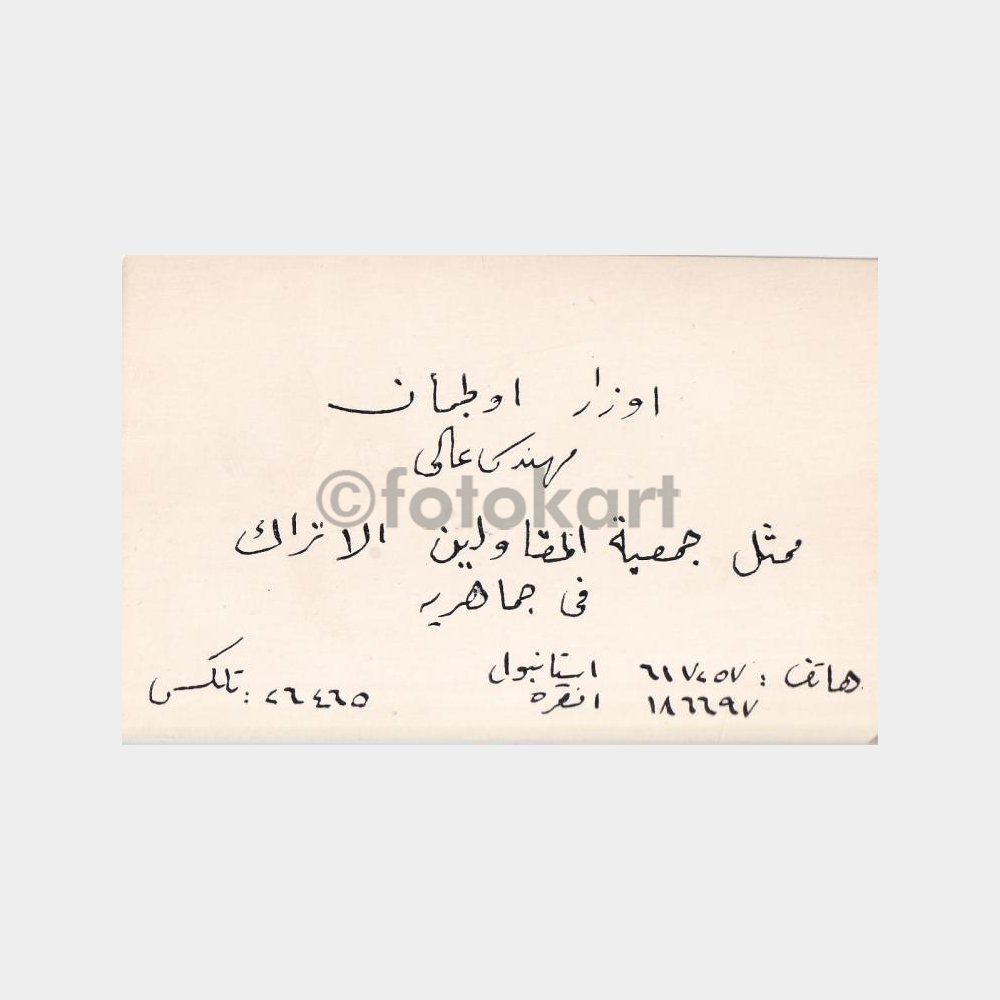 اوزار اوطمأن
مهندس عالى
ممثل جمعية المقاولين الاتراك
فى جماهريه
هاتف : ٦١٧٠٥٧ استانبول
١٨٦٦٩٧ انقره
تلكس : ٢٦٤٦٥
©fotokart